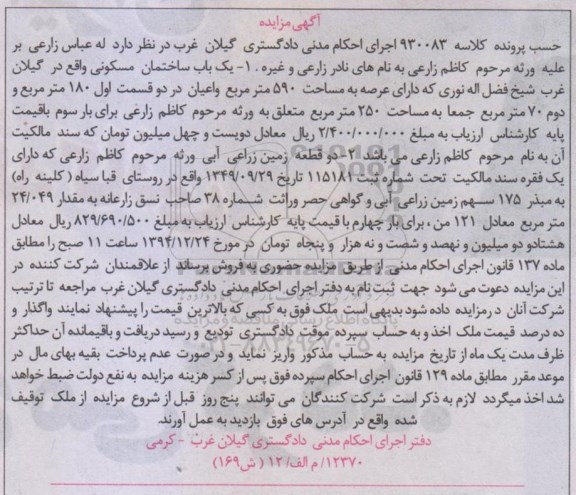 آگهی مزایده
حسب پرونده کلاسه ۹۳۰۰۸۳ اجرای احکام مدنی دادگستری گیلان غرب در نظر دارد له عباس زارعی بر
علیه ورثه مرحوم کاظم زارعی به نام های نادر زارعی و غیره . ۱- یک باب ساختمان مسکونی واقع در گیلان
غرب شیخ فضل اله نوری که دارای عرصه به مساحت ۵۹۰ متر مربع واعیان در دو قسمت اول ۱۸۰ متر مربع و
دوم ۷۰ متر مربع جمعا به مساحت ۲۵۰ متر مربع متعلق به ورثه مرحوم کاظم زارعی برای بار سوم باقیمت
پایه کارشناس ارزیاب به مبلغ ۲/۴۰۰/۰۰۰/۰۰۰ ریال معادل دویست و چهل میلیون تومان که سند مالکیت
آن به نام مرحوم کاظم زارعی می باشد ۲- دو قطعه زمین زراعی آبی ورثه مرحوم کاظم زارعی که دارای
یک فقره سند مالکیت تحت شماره ثبت ۱۱۵۱۸۱ تاریخ ۱۳۴۹/۰۹/۲۹ واقع در روستای قبا سیاه ( کلینه راه)
به مبذر ۱۷۵ سهم زمین زراعی آبی و گواهی حصر وراثت شماره ۳۸ صاحب نسق زارعانه به مقدار ۲۴/۰۴۹
متر مربع معادل ۱۲۱ من ، برای بار چهارم با قیمت پایه کارشناس ارزیاب به مبلغ ۸۲۹/۶۹۰/۵۰۰ ریال معادل
هشتادو دو میلیون و نهصد و شصت و نه هزار و پنجاه تومان در مورخ ۱۳۹۴/۱۲/۲۴ ساعت ۱۱ صبح را مطابق
ماده ۱۳۷ قانون اجرای احکام مدنی از طریق مزایده حضوری به فروش برساند از علاقمندان شرکت کننده در
این مزایده دعوت می شود جهت ثبت نام به دفتر اجرای احکام مدنی دادگستری گیلان غرب مراجعه تا ترتیب
شرکت آنان در مزایده داده شود بدیهی است ملک فوق به کسی که بالاترین قیمت را پیشنهاد نمایند واگذار و
ده درصد قیمت ملک اخذ و به حساب سپرده موقت دادگستری تودیع و رسید دریافت و باقیمانده آن حداکثر
ظرف مدت یک ماه از تاریخ مزایده به حساب مذکور واریز نماید و در صورت عدم پرداخت بقیه بهای مال در
موعد مقرر مطابق ماده ۱۲۹ قانون اجرای احکام سپرده فوق پس از کسر هزینه مزایده به نفع دولت ضبط خواهد
شد اخذ میگردد لازم به ذکر است شرکت کنندگان می توانند پنج روز قبل از شروع مزایده از ملک توقیف
شده واقع در آدرس های فوق بازدید به عمل آورند.
دفتر اجرای احکام مدنی دادگستری گیلان غرب - کرمی
۱۲۳۷۰/ م الف/ ۱۲ ( ش۱۶۹)